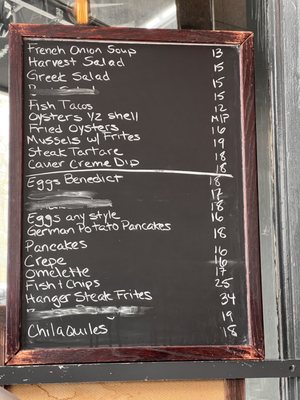 French Onion Soup 13
Harvest Salad 15
Greek Salad 15
15
Fish Tacos 12
Oysters 1/2 shell MP
Fried Oysters 16
Mussels w/ Frites 19
Steak Tartare 18
Caver Creme Dip 18
Eggs Benedict 18
17
18
Eggs any style 16
German Potato Pancakes 18
Pancakes 16
Crepe 16
Omelette 17
Fish + Chips 25
Hanger Steak Frites 34
19
Chilaquiles 18